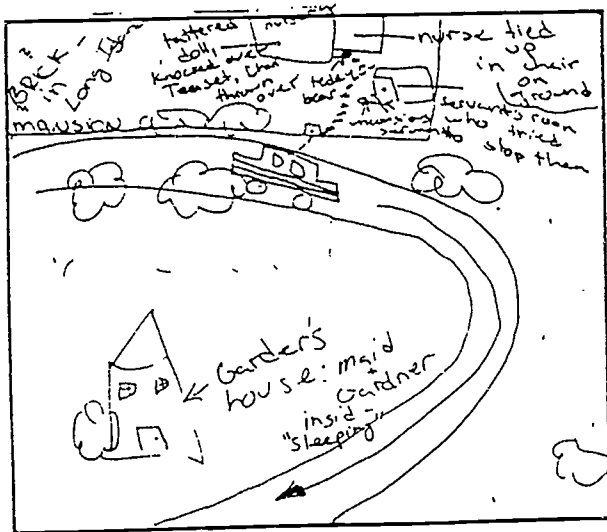 "BRICK"-
in
Long Island
mansion
tattered
doll,
knocked over
Teaset, Chair
thrown
over
nurse
teddy
bear
nurse tied
up
in chair
on
ground
servant's room
unconsious
servant
who tried
to stop them
Garder's
house: maid
+
Gardner
insid-
"sleeping"